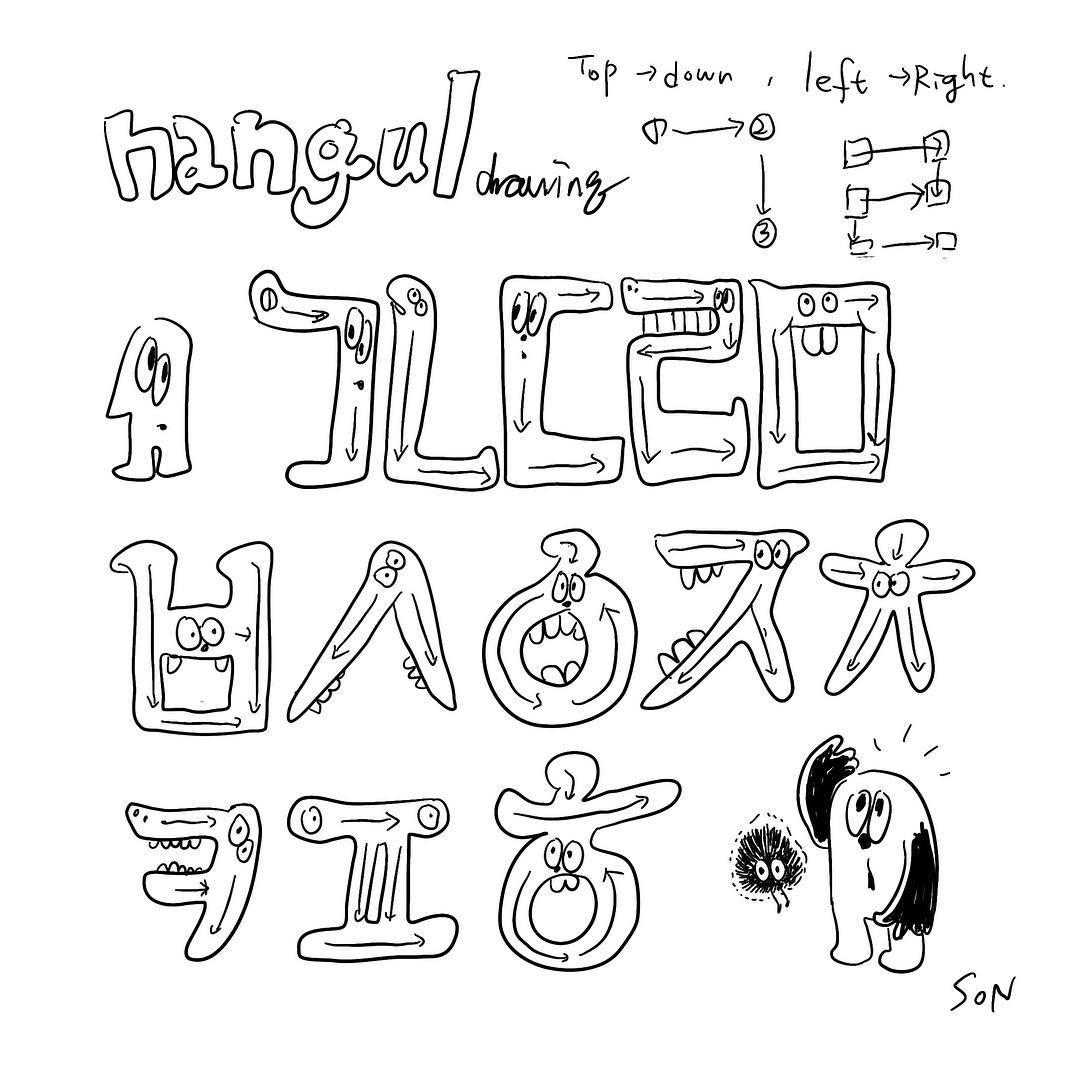 Top → down , left → Right.
hangul drawing
① → ②
③
ㄱㄴㄷㄹㅁ
ㅂㅅㅇㅈㅊ
ㅋㅍㅎ
SON